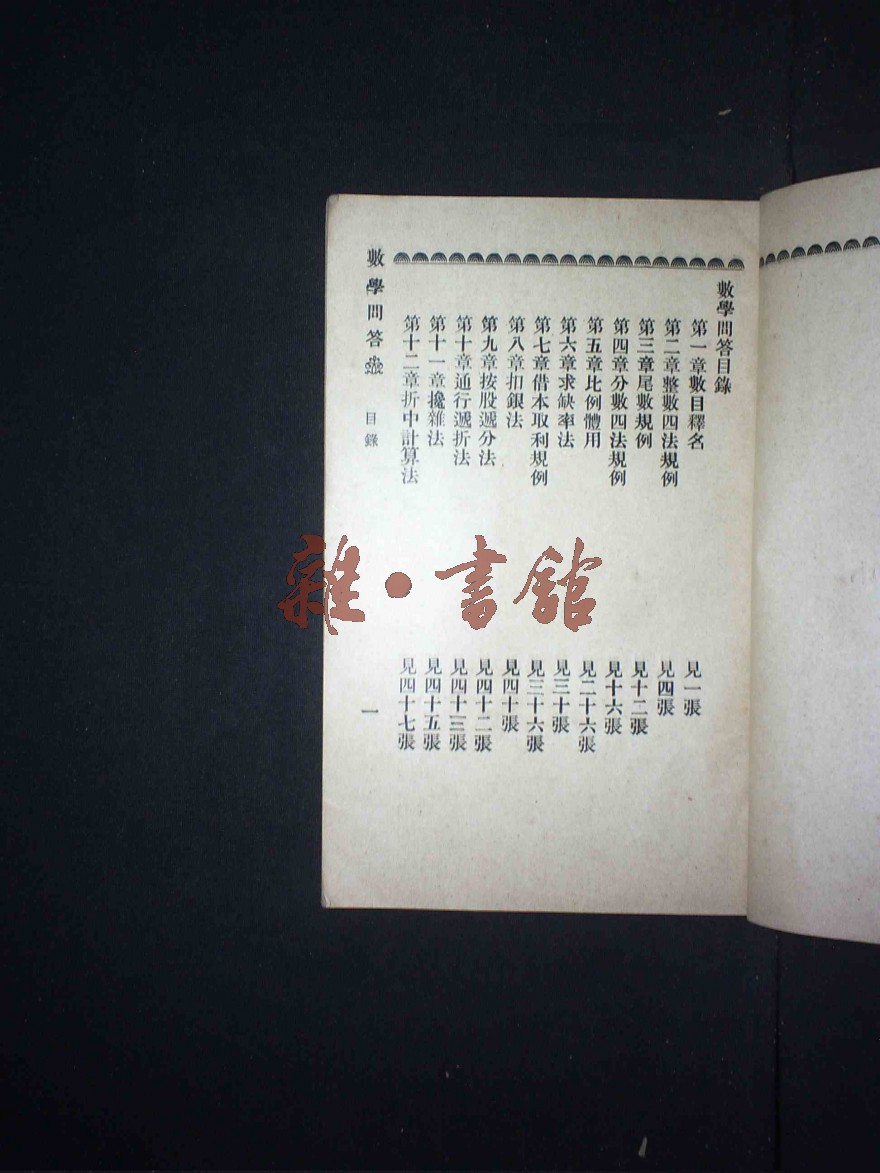 數學問答目錄
第一章數目釋名 見一張
第二章整數四法規例 見四張
第三章尾數規例 見十二張
第四章分數四法規例 見十六張
第五章比例體用 見二十六張
第六章求缺率法 見三十張
第七章借本取利規例 見三十六張
第八章扣銀法 見四十張
第九章按股遞分法 見四十二張
第十章通行遞折法 見四十三張
第十一章攙雜法 見四十五張
第十二章折中計算法 見四十七張
數學問答 目錄 一
雜·書館